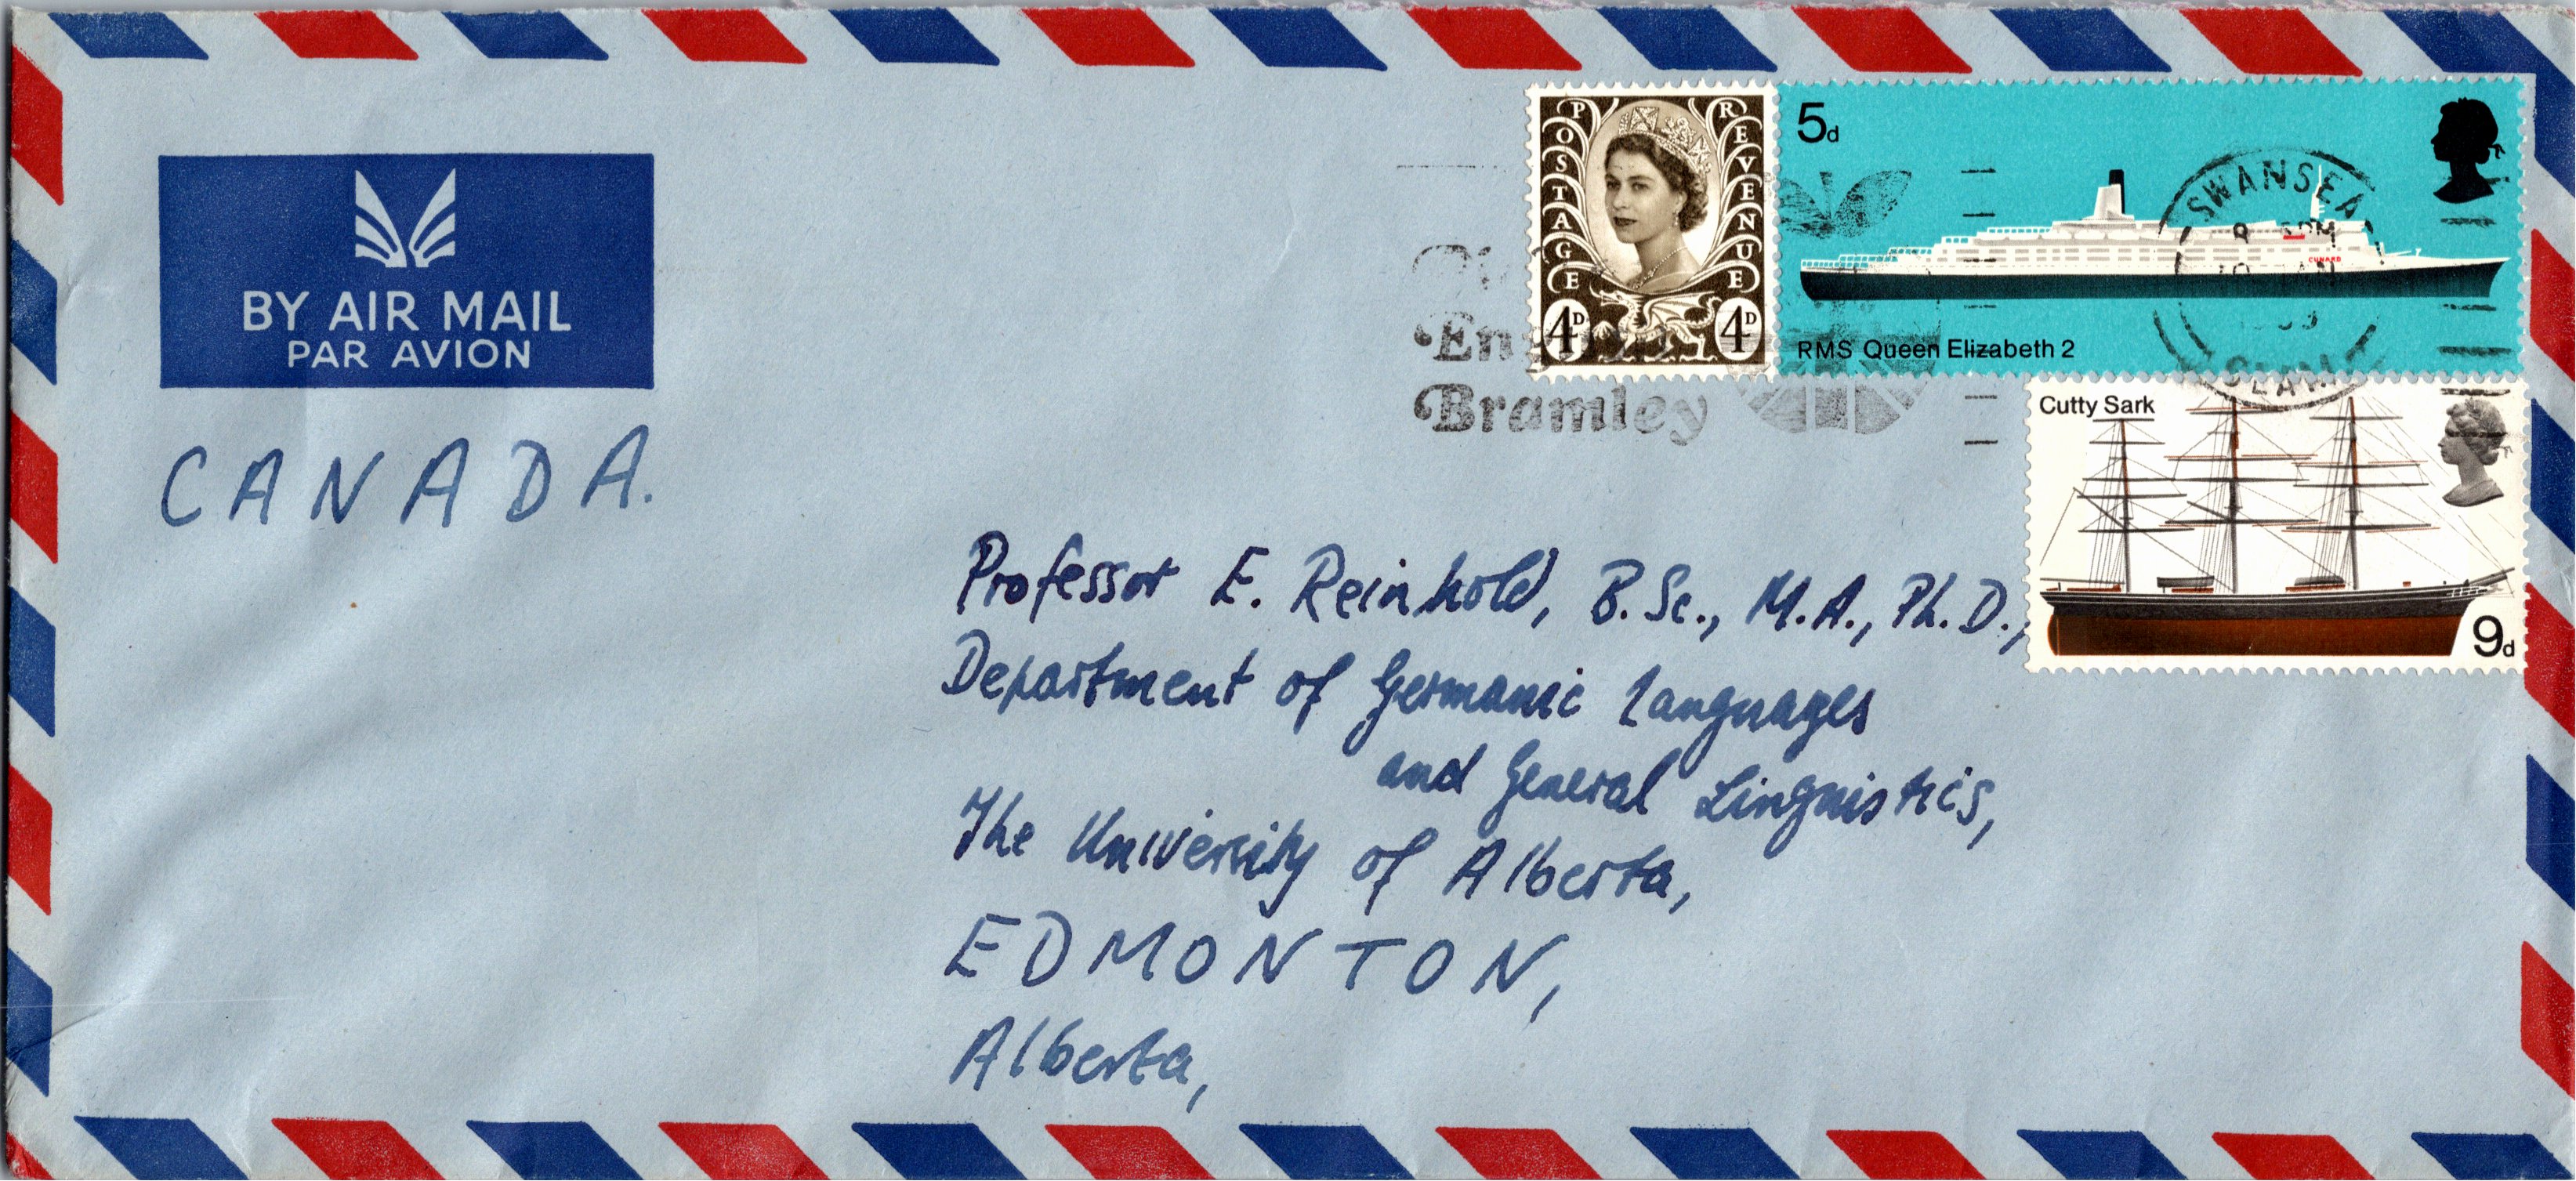 BY AIR MAIL
PAR AVION
CANADA.
POSTAGE
REVENUE
4D
4D
5d
RMS Queen Elizabeth 2
SWANSEA
PM
GLAM
Bramley
Cutty Sark
9d
CUNARD
Professor E. Reinhold, B.Sc., M.A., Ph.D.,
Department of Germanic Languages
and General Linguistics,
The University of Alberta,
EDMONTON,
Alberta,